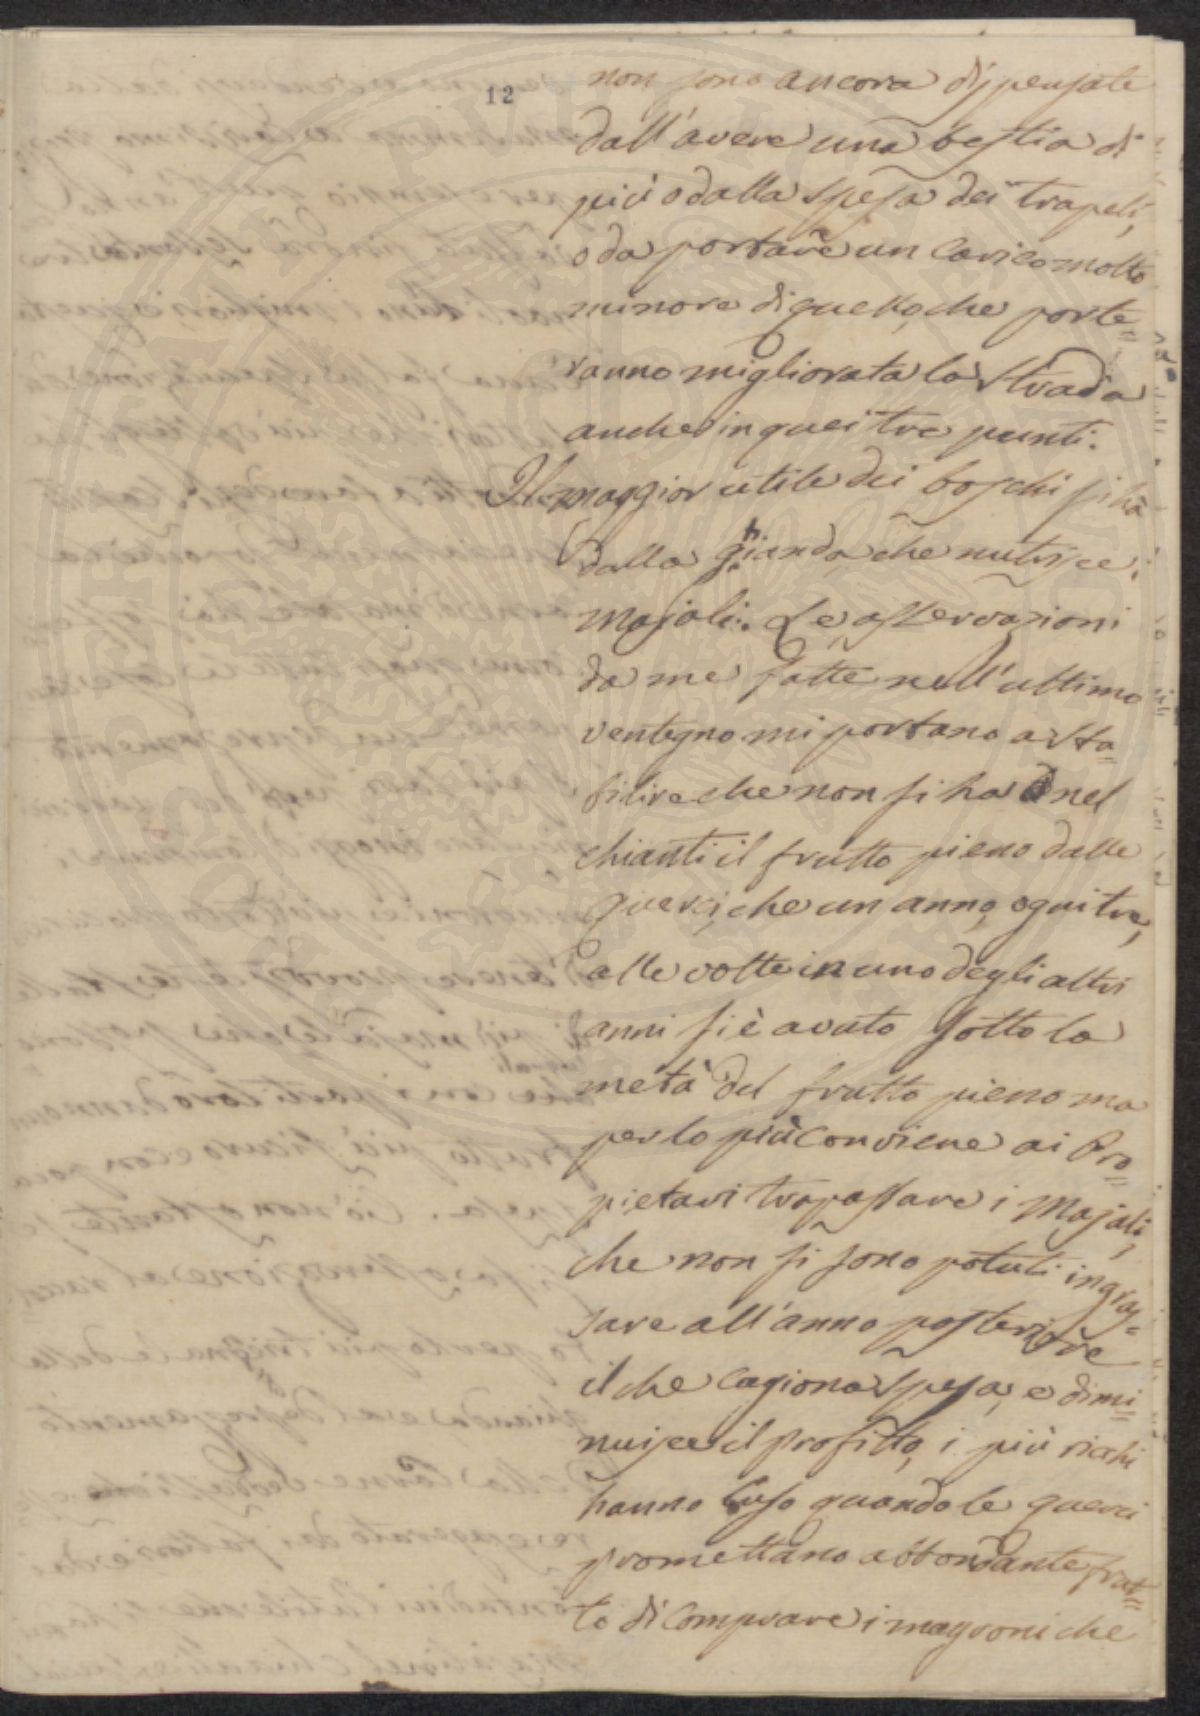 12
non sono ancora dispensate
dall'avere una bestia di
più o dalla spesa dei trapeli,
o da portare un carico molto
minore di quello, che porte=
ranno migliorata la strada
anche in quei tre punti.
Il maggior utile dei boschi si há
dalla ghianda che nutrisce i
majali. Le osservazioni
da me fatte nell'ultimo
ventegno mi portano a sta=
bilire che non si ha nel
chianti il frutto pieno dalle
querci, che un anno, ogni tre,
alle volte in uno degli altri
anni si è avuto sotto la
metà del frutto pieno ma
per lo più conviene ai Pro=
pietari trapassare i Majali,
che non si sono potuti ingras=
sare all'anno posteriore
il che cagiona spesa, e dimi=
nuisce il profitto, i più ricchi
hanno l'uso quando le querci
promettano abbondante frut=
to di comprare i magroni che